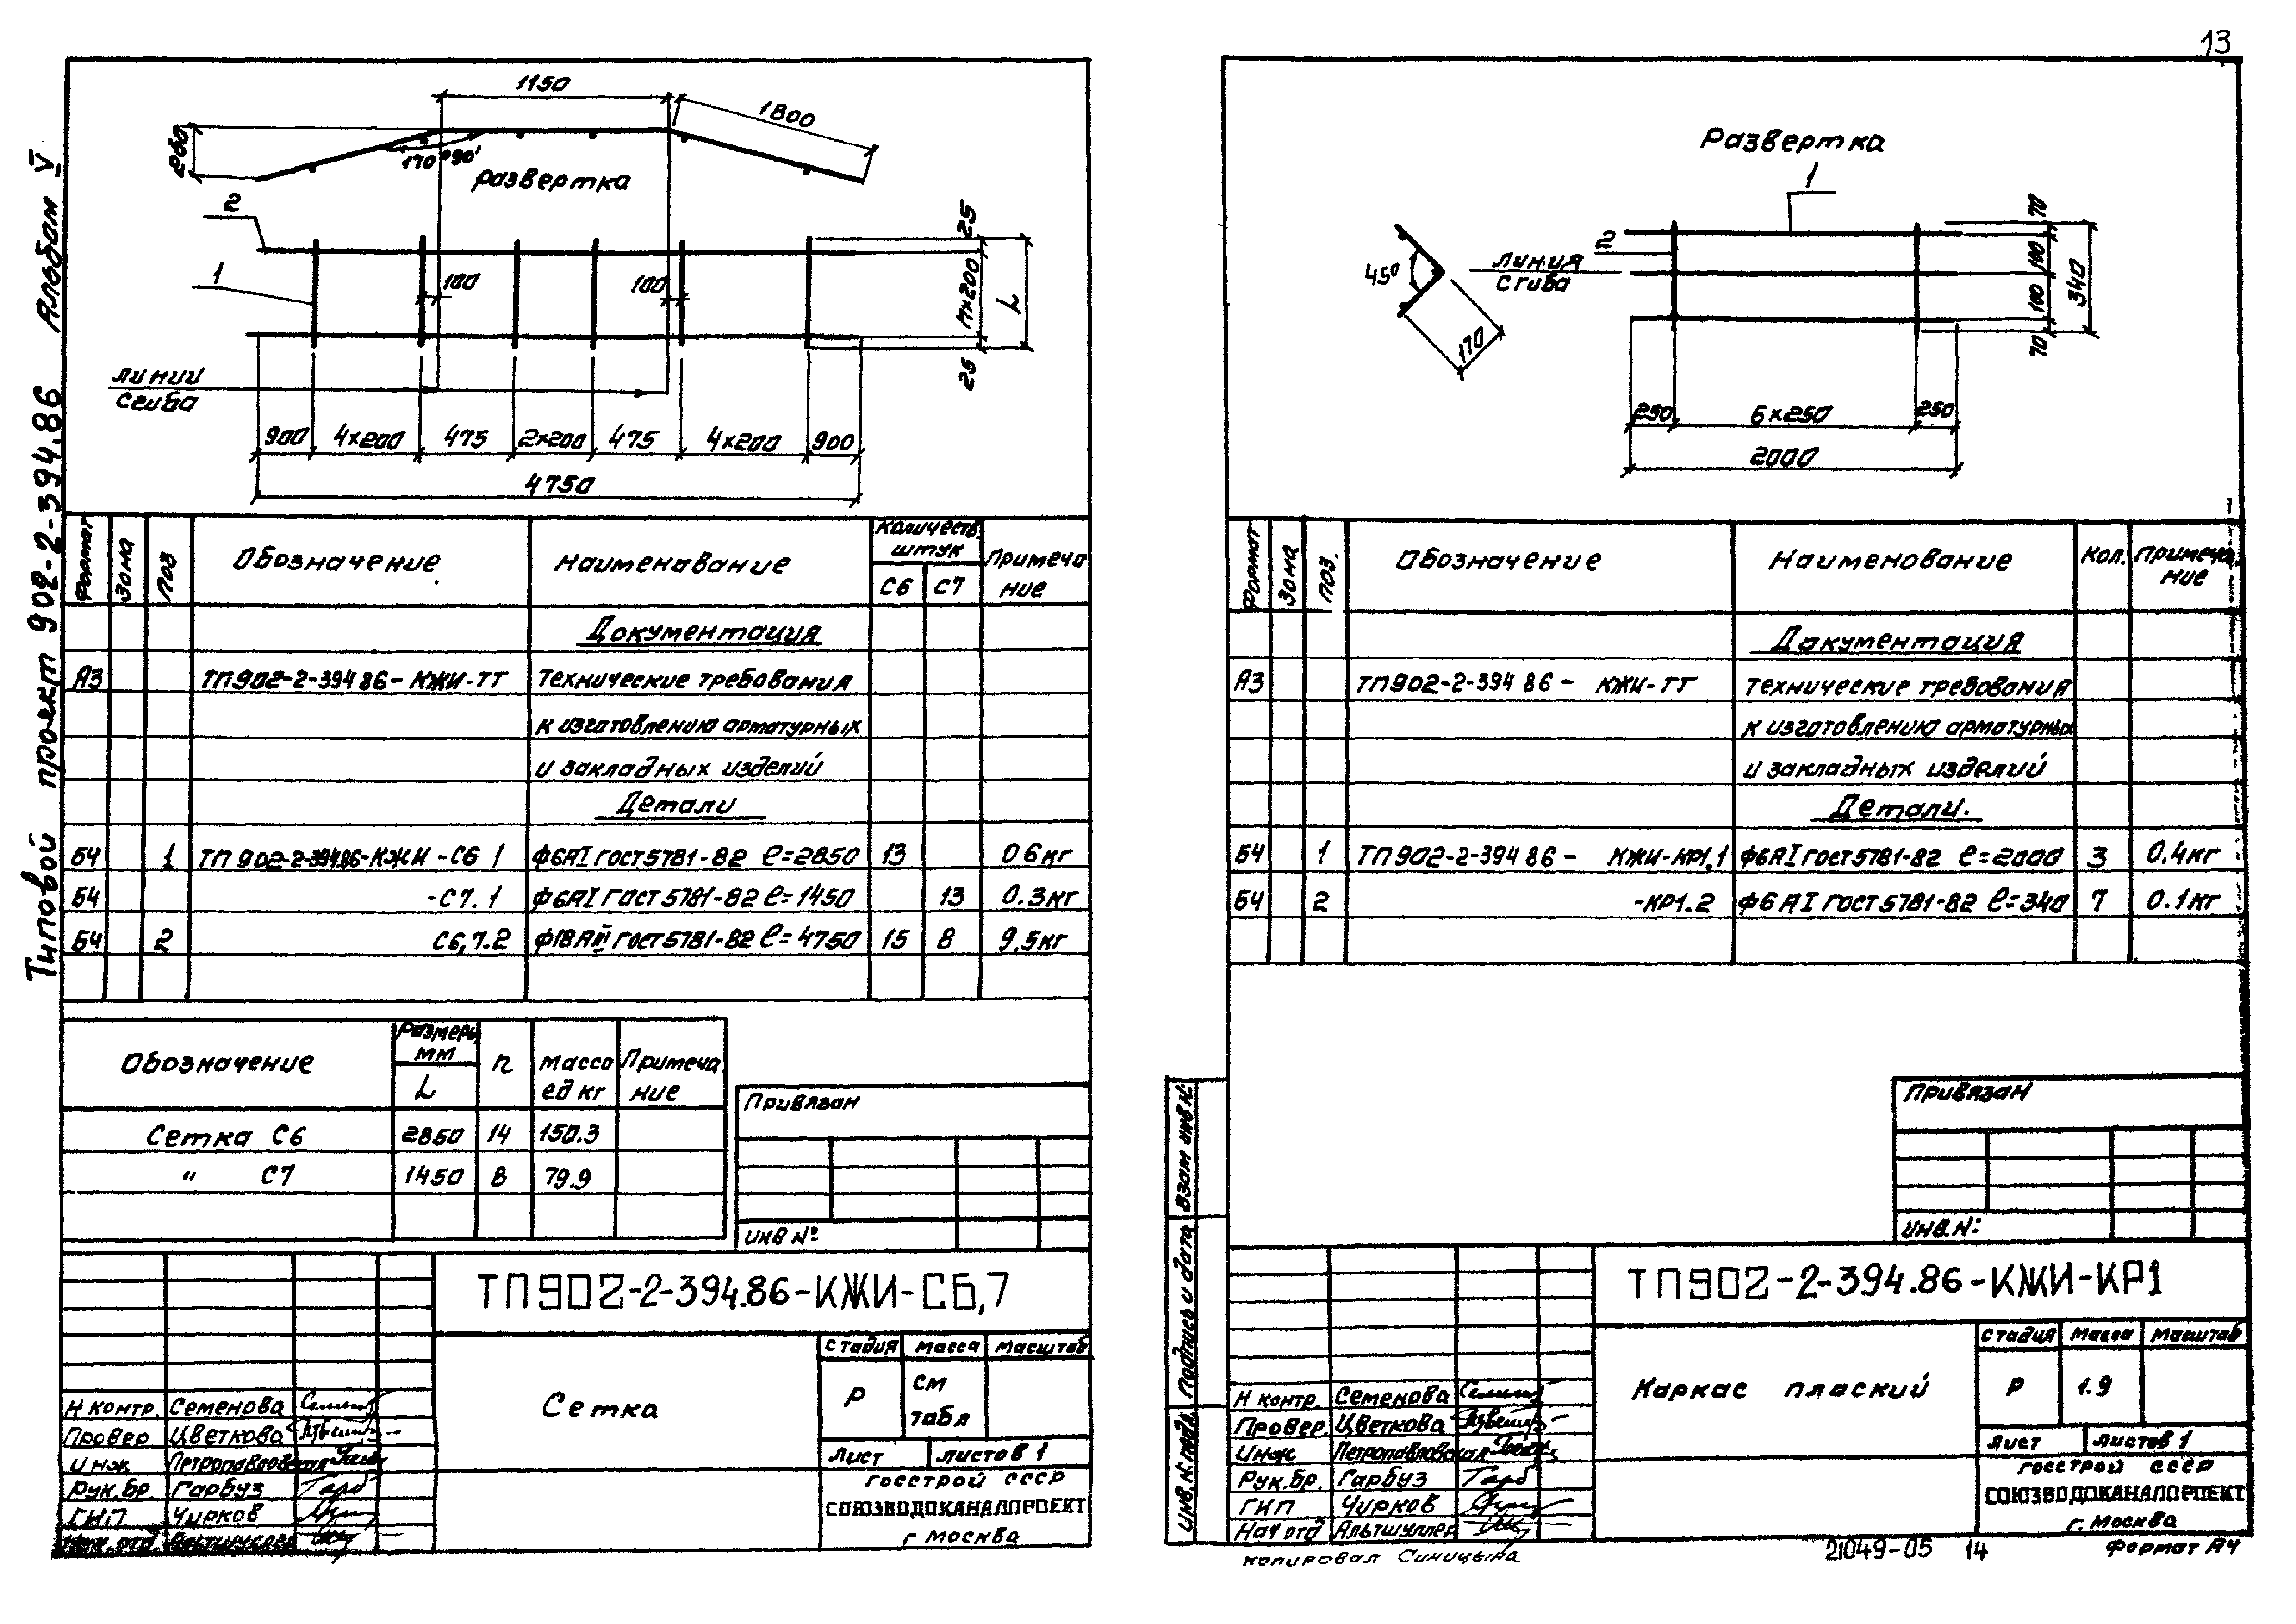 13
Типовой проект 902-2-394.86 Альбом V
1150
1800
260
170°90'
развертка
2
1
100
100
25
n×200
L
25
линии
сгиба
900 4×200 475 2×200 475 4×200 900
4750
Формат Зона Поз Обозначение Наименавание Количеств. штук Примеча
ние
С6 С7
Документация
А3 ТП902-2-394 86-КЖИ-ТТ Технические требования
к изготовлению арматурных
и закладных изделий
Детали
Б4 1 ТП 902-2-394.86-КЖИ-С6 1 ф6АI ГОСТ5781-82 ℓ=2850 13 0 6кг
Б4 -С7.1 ф6АI ГОСТ5781-82 ℓ=1450 13 0.3кг
Б4 2 С6,7.2 ф18АIII ГОСТ5781-82 ℓ=4750 15 8 9,5кг
Обозначение Размеры мм n Масса Примеча
L ед кг ние
Сетка С6 2850 14 150.3
" С7 1450 8 79.9
Привязан
инв №
ТП902-2-394.86-КЖИ-С6,7
Сетка
стадия масса масштаб
Р см
табл
Лист листов 1
госстрой ссср
СОЮЗВОДОКАНАЛПРОЕКТ
г Москва
Н контр. Семенова
Провер Цветкова
Инж Петропавловская
Рук.бр. Гарбуз
ГИП Чирков
Нач.отд. Альтшуллер
Развертка
1
2
450
линия
сгиба
170
70
100
100
70
340
250 6×250 250
2000
Формат Зона Поз. Обозначение Наименование Кол. Примеча
ние
Дакументация
А3 ТП902-2-394 86- КЖИ-ТТ технические требования
к изготовлению арматурных
и закладных изделий
Детали.
Б4 1 ТП902-2-394 86- КЖИ-КР1.1 ф6АI ГОСТ5781-82 ℓ=2000 3 0.4кг
Б4 2 -КР1.2 ф6АI ГОСТ5781-82 ℓ=340 7 0.1кг
Привязан
инв.N:
Взам инв.N:
Подпись и дата
Инв.N:подл.
ТП902-2-394.86-КЖИ-КР1
Каркас плаский
стадия Масса Масштаб
Р 1.9
лист листов 1
госстрой ссср
СОЮЗВОДОКАНАЛПРОЕКТ
г. Москва
Н контр. Семенова
Провер. Цветкова
Инж Петропавловская
Рук.бр. Гарбуз
ГИП Чирков
Нач отд Альтшуллер
копировал Синицына
21049-05 14
Формат А4